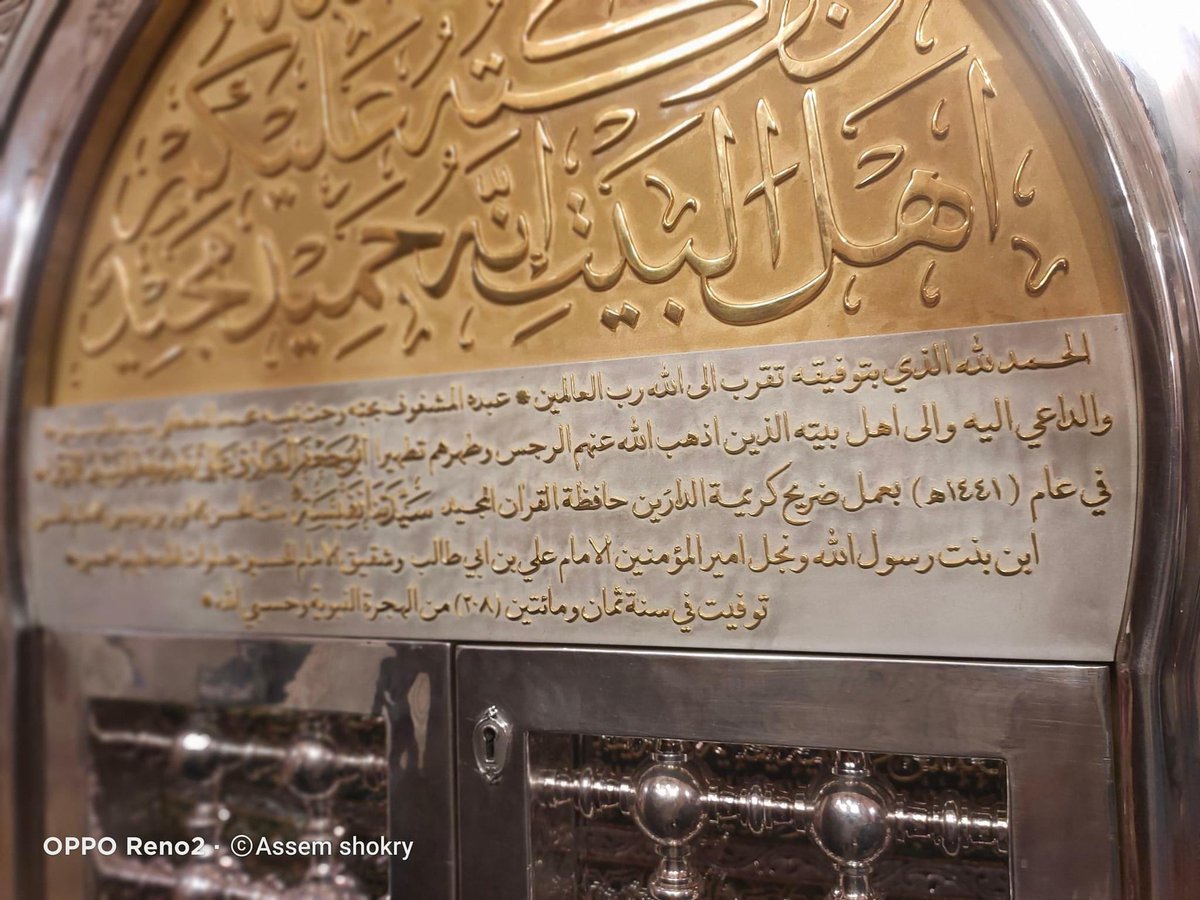 وبركته عليكم
اهل البيت إنه حميد مجيد
الحمد لله الذي بتوفيقه تقرب الى الله رب العالمين * عبده المشغوف بحبه وحب نبيه
والداعي اليه والى اهل بيته الذين اذهب الله عنهم الرجس وطهرهم تطهيرا ابو جعفر الصادق
في عام (١٤٤١ه) بعمل ضريح كريمة الدارين حافظة القرآن المجيد سيدتنا نفيسة بنت الحسن
ابن بنت رسول الله ونجل امير المؤمنين الامام علي بن ابي طالب وشقيق الامام الحسين
توفيت في سنة ثمان ومائتين (٢٠٨) من الهجرة النبوية وحسبي الله *
OPPO Reno2 · ©Assem shokry